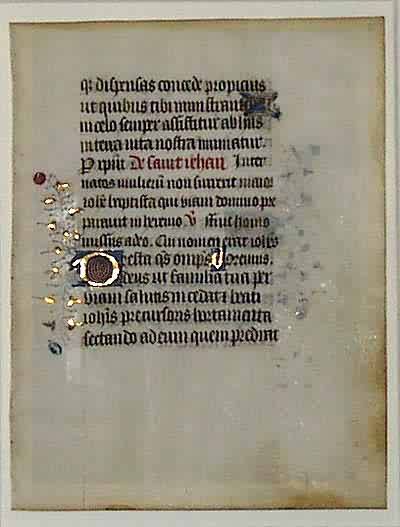 qr dispensas concede propicius
ut quibus tibi ministrantibus
in celo semper assistitur ab hiis
in terra vita nostra muniatur.
P xpm De saint iehan Inter
natos mulierū non surrexit maior
iohē baptista qui viam domino pre
paravit in heremo v̄ ffuit homo
missus a deo. Cui nomen erat iohes
Presta qs omps Oremus.
deus ut familia tua per
viam salutis incedat ⁊ beati
iohis precursoris hortamenta
sectando ad eum quem predixit